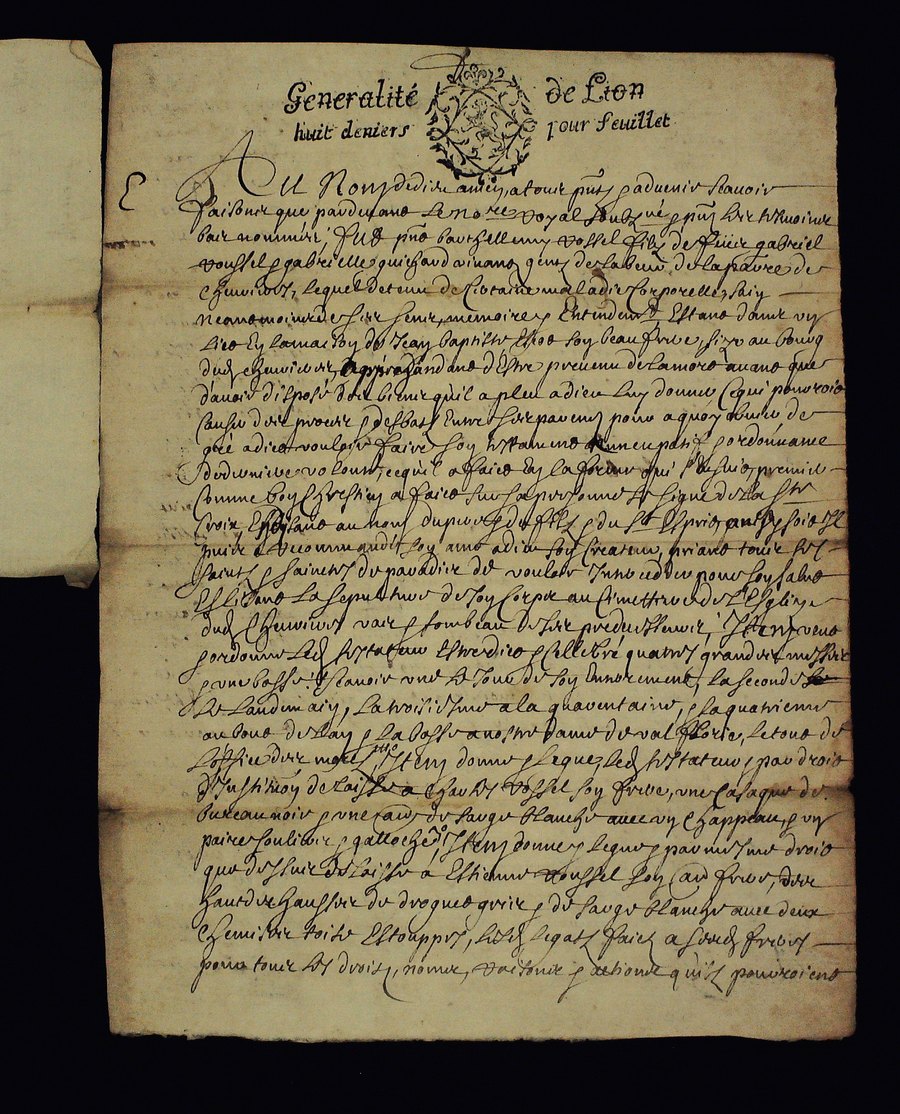 Generalité de Lion
huit deniers pour feuillet
Au Nom de dieu amen, a tous pnts & advenir scavoir
faisons que pardevant le nore royal soubz né & pnts les tesmoings
bas nommés, fut pnt barthellemy vossel filz de feus gabriel
voussel & gabrielle guichard vivantz gens de labeur de la parre de
Chenieres, lequel detenu de Certaine maladie Corporelle, sain
neantmoins de ses sens, memoire & Entendemt Estant dans un
lict En la maison de Jean baptiste son beau frere, size au bourg
dud Chenieres, apprehendant d'Estre prevenu de la mort avant que
d'avoir disposé des biens qu'il a pleu a dieu luy donner, Ce qui pourroit
Causer des proces & desbatz Entre ses parens pour a quoy obvier de
gré a dict vouloir faire son testament nuncupatif & ordonnance
de derniere volonté, ce qu'il a faict En la forme qui s'ensuit, premier
Comme bon Chrestien a faict sur sa personne le signe de la Ste
Croix En disant au nom du pere & du filz & du St Esprit ainsy soit il
puis a recommandé son ame a dieu son Createur, priant tous les
saintz & sainctes de paradis de vouloir Interceder pour son salut
Eslisant la sepulture de son Corps au Cimettiere de l'Esglize
dud Chenieres vas & tombeau de ses predecesseurs, Item veut
& ordonne led testateur Estre dict & Cellebré quatres grandes messes
& une basse Scavoir une le Jour de son Enterrement, la seconde
le Landemain, la troisiesme a la quarentaine, & la quatrieme
au bout de l'an & la basse a nostre dame de val fflorie, le tout de
l'offise des morts, Item donne & legue led testateur & par droit
d'Institution delaisse a Charles vossel son frere, une Casaque de
bureau noir & une de sarge blanche avec un Chappeau, & un
paire soulier & galloche, Item donne & legue & par mesme droit
que dessus delaisse á Estienne voussel son frere, des
haut des hausses de drognet gris & de sarge blanche avec deux
Chemises toile Estouppes, lesd legatz faictz a sesd freres
pour tous les droitz, noms, raisons & actions qu'ilz pourroient